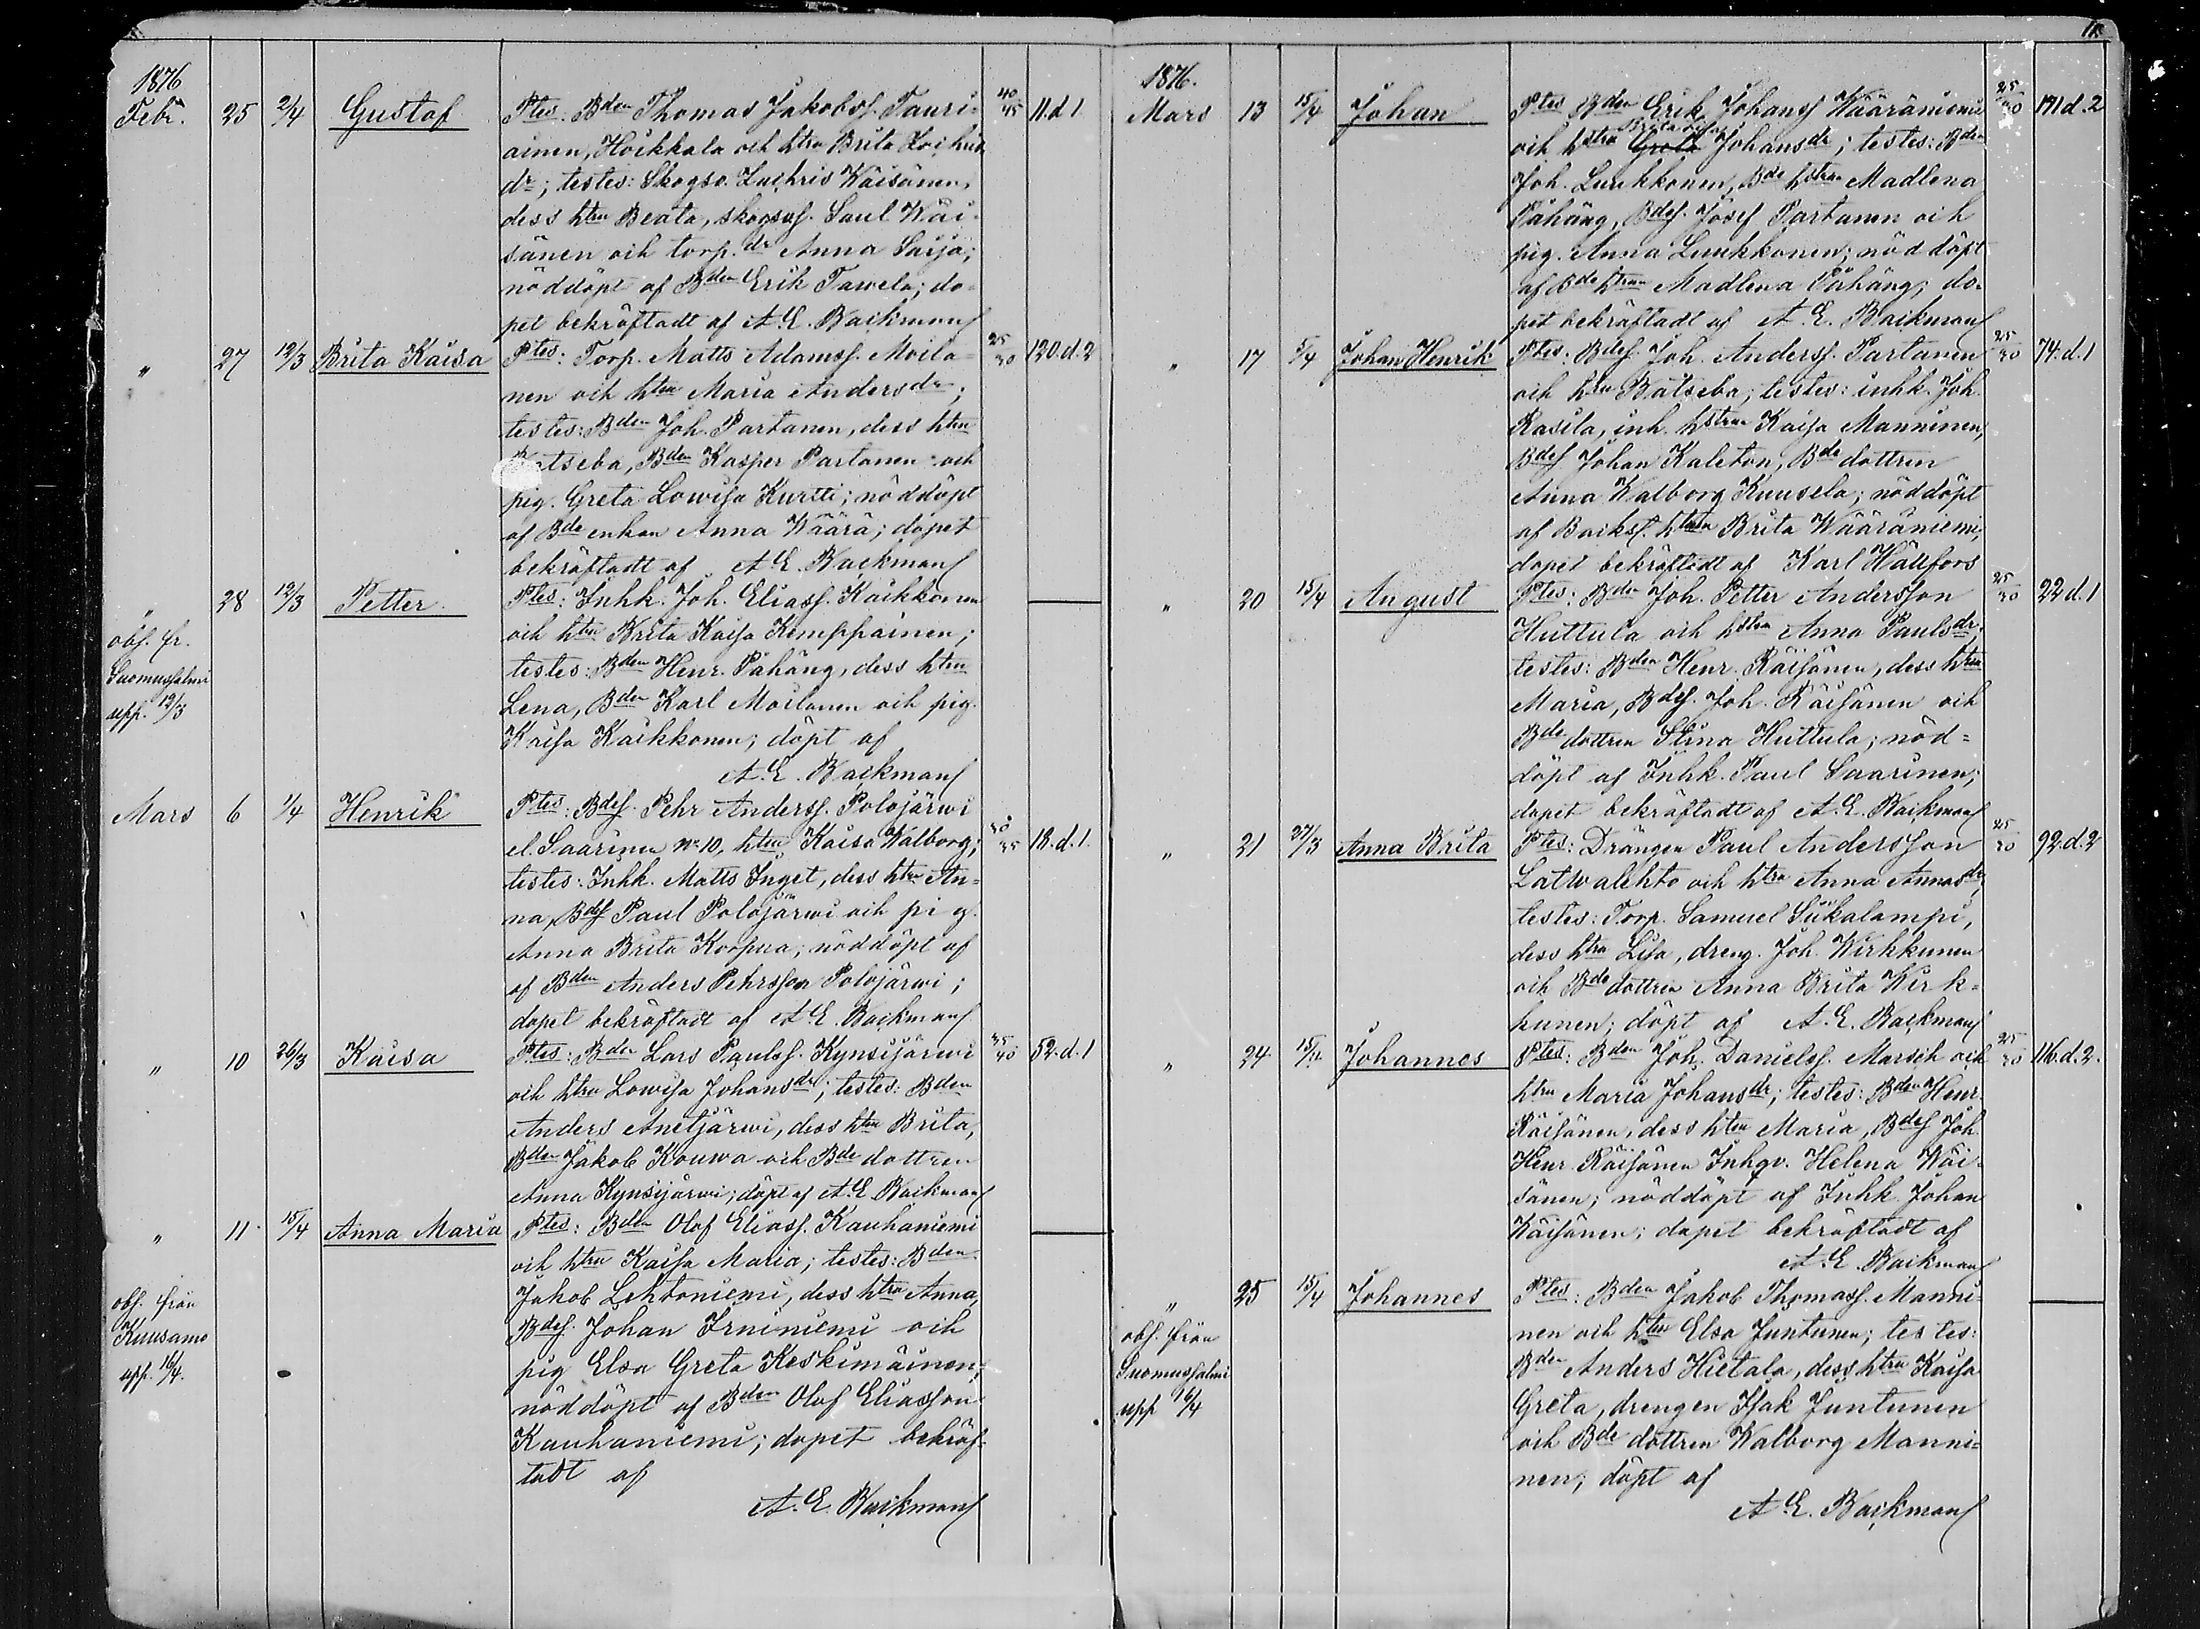 1876
Febr. 25 2/4 Gustaf Ptes. Bden Thomas Jakobss. Tauri- 40/45 11.d.1
ainen, Hoikkala och htru Brita Zachris
dr; testes: Skogsv. Zachris Wäisänen,
dess htru Beata, skogsvs. Saul Wäi-
sänen och torp. dr Anna Saija;
nöddöpt af Bden Erik Tawela; do-
pet bekräftadt af A. E. Backman
" 27 12/3 Brita Kaisa Ptes: Torp. Matts Adamss. Moila- 25/30 120.d.2
nen och htru Maria Andersdr;
testes: Bden Joh. Partanen, dess htru
Batseba, Bden Kasper Partanen och
pig. Greta Lowisa Kurtti; nöddöpt
af Bde enkan Anna Wäärä; dopet
bekräftadt af A. E. Backman
" 28 12/3 Petter Ptes: Inhk. Joh. Eliass. Kaikkonen
obs. fr. och htru Brita Kaisa Kemppainen;
Suomussalmi testes: Bden Henr. Pähäng, dess htru
upp. 12/3 Lena, Bden Karl Moilanen och pig.
Kaisa Kaikkonen; döpt af
A. E. Backman
Mars 6 1/4 Henrik Ptes: Bdes. Pehr Anderss. Polojärwi
el. Saarinen No 10, htru Kaisa Walborg; 18.d.1.
testes: Inhk. Matts Inget, dess htru An-
na, Bdes Paul Polojärwi och pig.
Anna Brita Korpua; nöddöpt af
af Bden Anders Pehrsson Polojärwi;
dopet bekräftadt af A. E. Backman
" 10 26/3 Kaisa Ptes: Bden Lars Paulss. Kynsijärwi 35/40 52.d.1
och htru Lowisa Johansdr; testes: Bden
Anders Anetjärwi, dess htru Brita,
Bden Jakob Kouwa och Bde dottren
Anna Kynsijärwi; döpt af A. E. Backman
" 11 15/4 Anna Maria Ptes: Bden Olof Eliass. Kauhaniemi
och htru Kaisa Maria; testes: Bden
obs. från Jakob Lehtoniemi, dess htru Anna,
Kuusamo Bdes. Johan Irniniemi och
upp. 16/4. pig Elsa Greta Keskimäinen;
nöddöpt af Bden Olof Eliasson
Kauhaniemi; dopet bekräf-
tadt af
A. E. Backman
1876.
Mars 13 15/4 Johan Ptes. Bden Erik Johanss Wääräniemi 25/30 171.d.2
och htru Greta Johansdr; testes: Bden
Joh. Luukkonen, Bde hstrun Madlena
Pähäng, Bdes. Josef Partanen och
pig. Anna Luukkonen; nöddöpt
af Bde htrun Madlena Pähäng; do-
pet bekräftadt af A. E. Backman
" 17 5/4 Johan Henrik Ptes. Bdes Joh. Anderss. Partanen 25/30 74.d.1
och htru Batseba; testes: inhk. Joh.
Rasila, inh. hstrun Kaisa Manninen,
Bdes Johan Kaleton, Bde dottren
Anna Walborg Kuusela; nöddöpt
af Backst. htrun Brita Wääräniemi;
dopet bekräftadt af Karl Hällfors
" 20 15/4 August Ptes: Bden Joh. Petter Andersson 25/30 22.d.1
Huttula och hstru Anna Paulsdr;
testes: Bden Henr. Räisänen, dess htru
Maria, Bdes. Joh. Räisänen och
Bde dottren Stina Huttula; nöd=
döpt af Inhk. Paul Saarinen;
dopet bekräftadt af A. E. Backman
" 21 27/3 Anna Brita Ptes: Drängen Paul Andersson 25/30 92.d.2
Latwalehto och htru Anna Annasdr;
testes: Torp. Samuel Siikalampi,
dess htru Lisa, dreng. Joh. Wirkkunen
och Bde dottren Anna Brita Wirk-
kunen; döpt af A. E. Backman
" 24 15/4 Johannes Ptes: Bden Joh. Danielss. Marsch och 25/30 116.d.2.
htru Maria Johansdr; testes: Bden Henr.
Räisänen, dess htru Maria, Bdes Joh.
Henr. Räisänen Inhqv. Helena Wäi-
sänen; nöddöpt af Inhk. Johan
Räisänen; dopet bekräftadt af
A. E. Backman
" 25 15/4 Johannes Ptes: Bden Jakob Thomass. Manni-
obs. från nen och htru Elsa Juntunen; testes:
Suomussalmi Bden Anders Hietala, dess htru Kaisa
upp 16/4 Greta, drengen Isak Juntunen
och Bde dottren Walborg Manni=
nen; döpt af
A. E. Backman